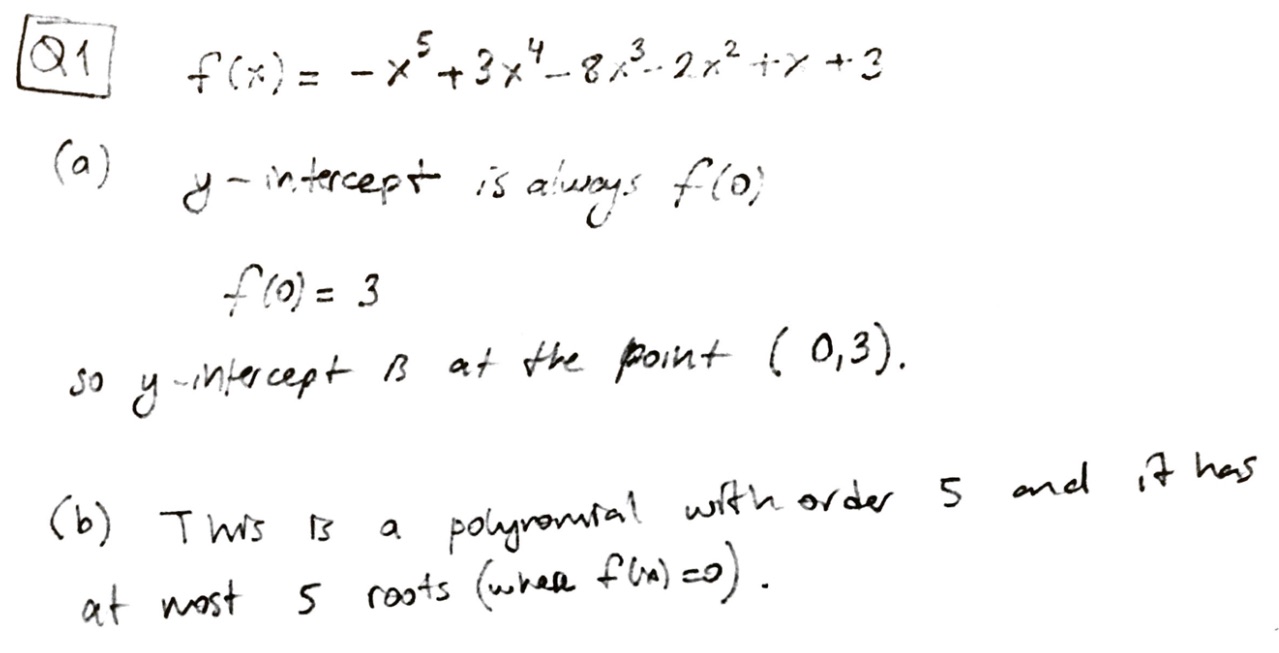 Q1 f(x) = -x⁵ + 3x⁴ - 8x³ - 2x² + x + 3
(a) y-intercept is always f(0)
f(0) = 3
so y-intercept is at the point (0,3).
(b) This is a polynomial with order 5 and it has
at most 5 roots (where f(x)=0).